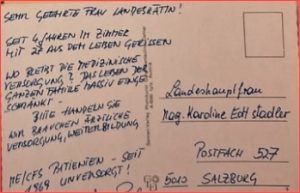 SEHR GEEHRTE FRAU LANDESRÄTIN!
SEIT 4 JAHREN IM ZIMMER
MIT AUS DEM LEBEN GERISSEN
WO BLEIBT DIE MEDIZINISCHE
VERSORGUNG? DAS LEBEN DER
GANZEN FAMILIE MASSIV EINGE-
SCHRÄNKT -
BITTE HANDELN SIE
WIR BRAUCHEN ÄRZTLICHE
VERSORGUNG, WEITERBILDUNG
ME/CFS PATIENTEN - SEIT
1969 UNVERSORGT!
Landeshauptfrau
Mag. Karoline Edtstadler
POSTFACH 527
5010 SALZBURG